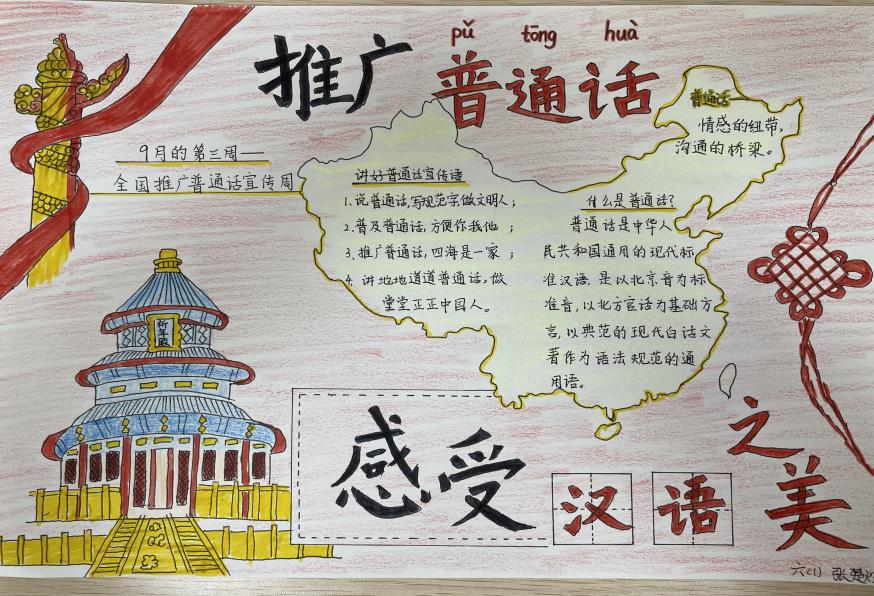 pǔ tōng huà
推广普通话
9月的第三周一
全国推广普通话宣传周
讲好普通话宣传语
1.说普通话,写规范字做文明人;
2.普及普通话,方便你我他;
3.推广普通话,四海是一家;
4.讲地地道道普通话,做
堂堂正正中国人。
普通话
情感的纽带,
沟通的桥梁。
什么是普通话?
普通话是中华人
民共和国通用的现代标
准汉语,是以北京音为标
准音,以北方官话为基础方
言,以典范的现代白话文
著作为语法规范的通
用语。
祈年殿
感受汉语之美
六(1) 张楚